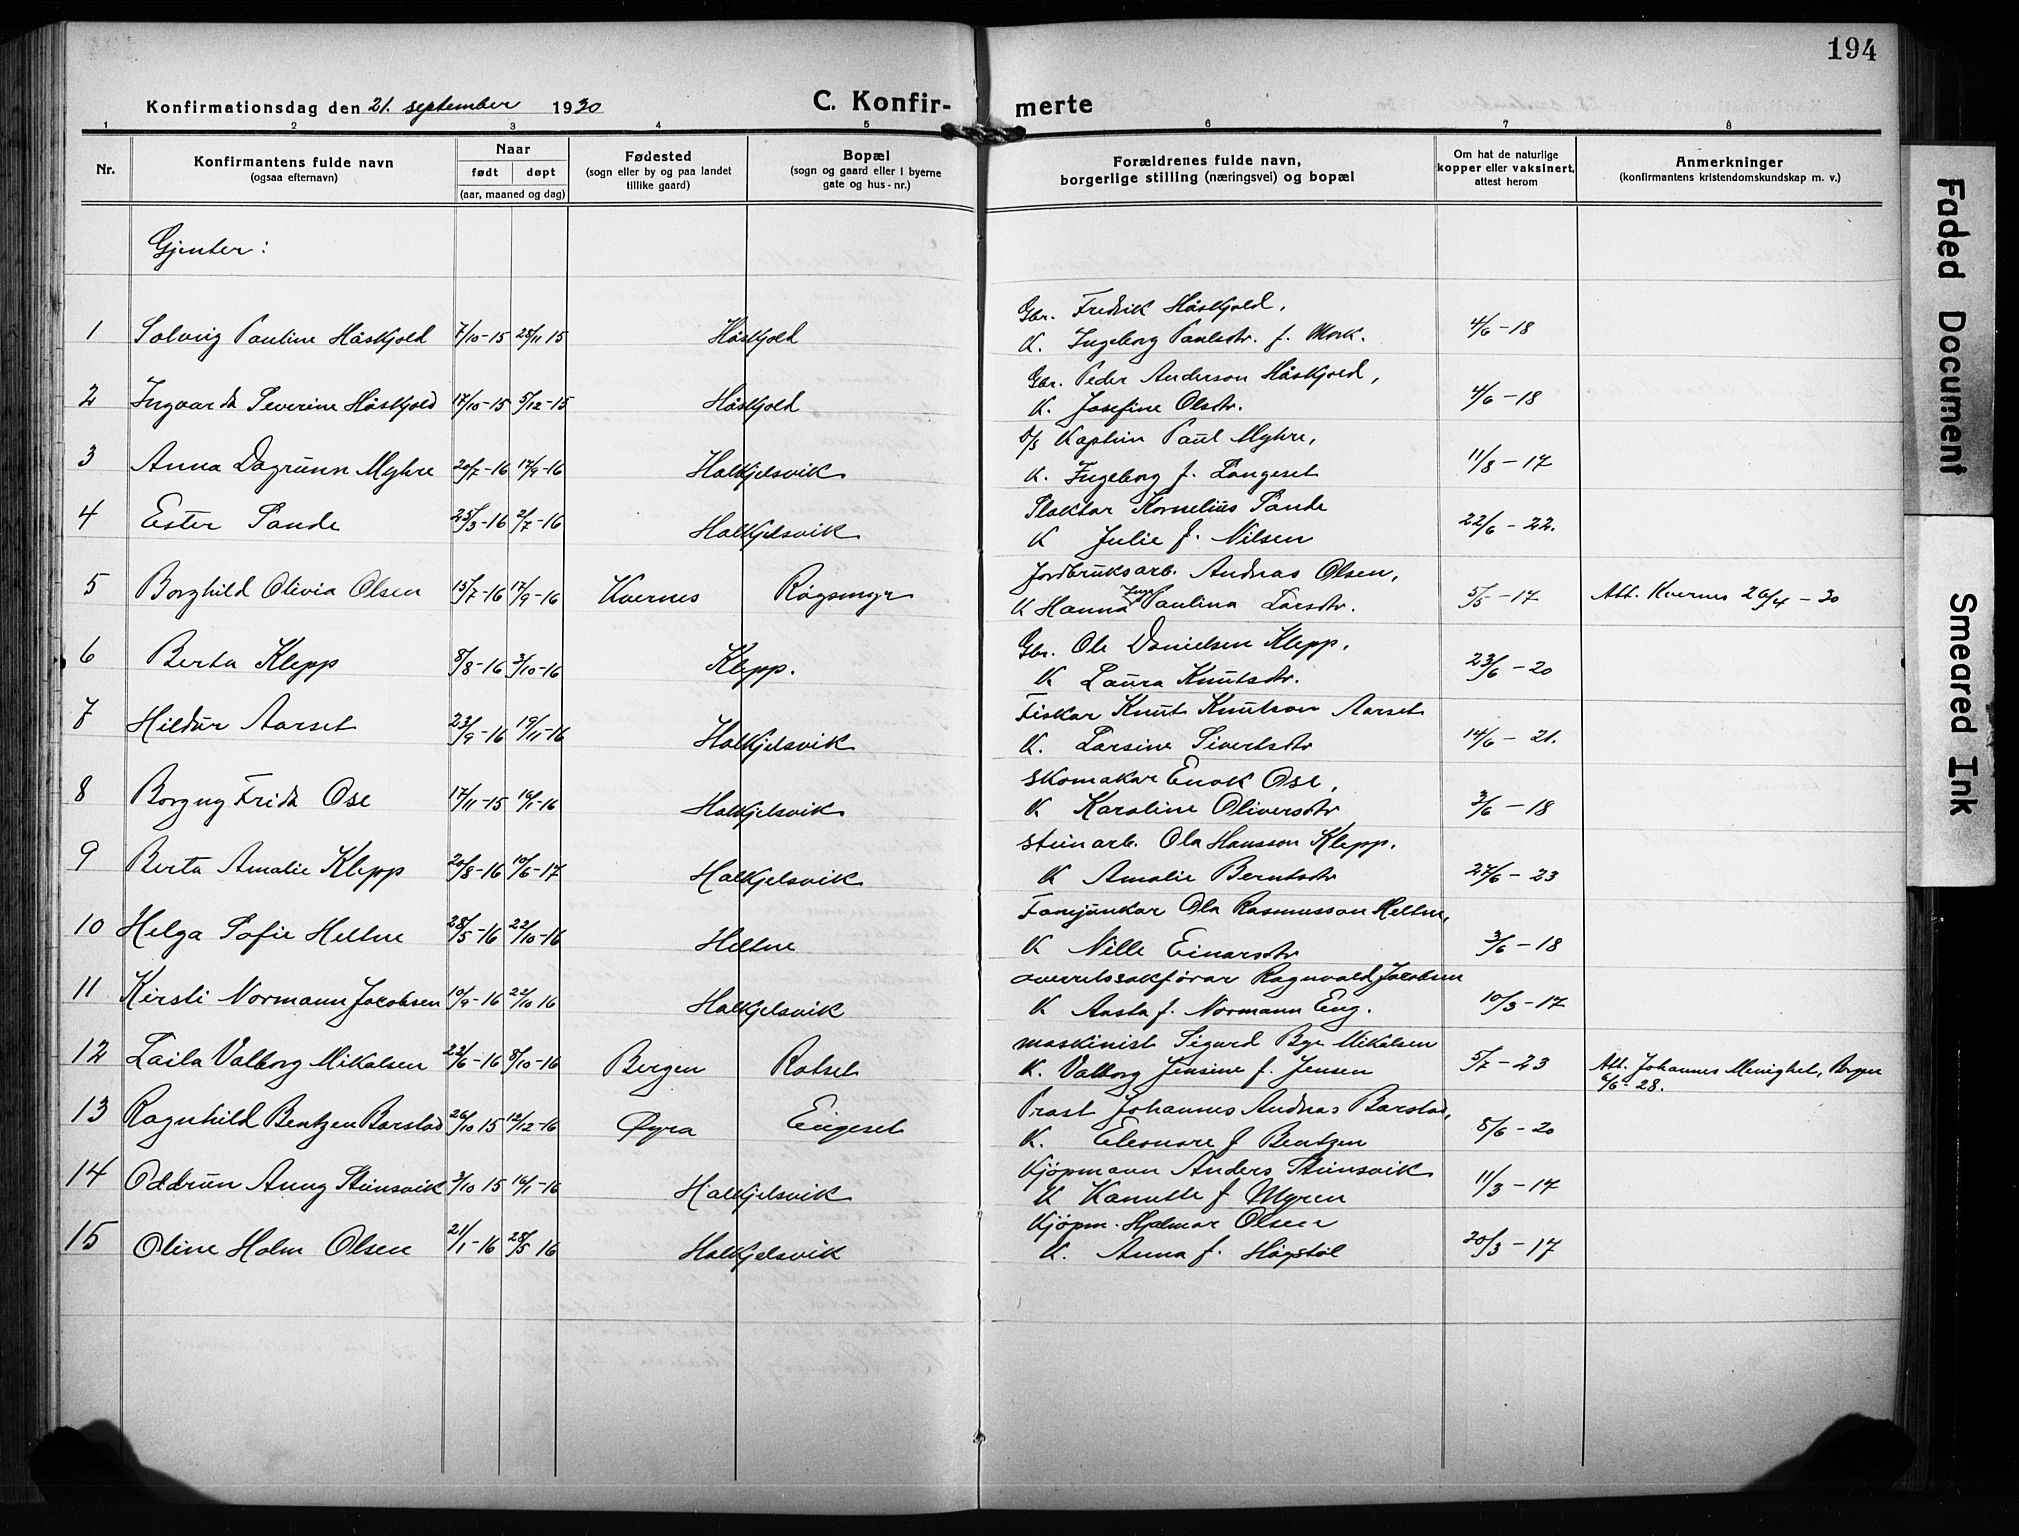 194
Konfirmationsdag den 21. september 1930 C. Konfir- merte
1 2 3 4 5 6 7 8
Nr. Konfirmantens fulde navn (ogsaa efternavn) Naar født døpt (aar, maaned og dag) Fødested (sogn eller by og paa landet tillike gaard) Bopæl (sogn og gaard eller i byerne gate og hus-nr.) Forældrenes fulde navn, borgerlige stilling (næringsvei) og bopæl Om hat de naturlige kopper eller vaksinert, attest herom Anmerkninger (konfirmantens kristendomskundskap m. v.)
Gjenter:
1 Solveig Pauline Håskjold 7/10-15 28/11 15 Håskjold Gbr. Fredrik Håskjold, 4/6-18
K. Ingeborg Paulsdtr. f. Mork.
2 Ingvarda Severine Håskjold 17/10-15 5/12-15 Håskjold Gbr. Peder Anderson Håskjold, 4/6-18
K. Josefine Olsdtr.
3 Anna Dagrunn Myhre 20/7-16 17/9-16 Halkjelsvik D/S Kaptein Paul Myhre, 11/8-17
K. Ingeborg f. Langeset
4 Ester Sande 25/3-16 2/7-16 Halkjelsvik Slaktar Kornelius Sande 22/6-22.
K Julie f. Nilsen
5 Borghild Olivia Olsen 15/7-16 17/9-16 Kvernes Røgsmyr Jordbruksarb. Andreas Olsen, 5/5-17 Att. Kvernes 26/4-30
K Hanna Inga Paulina Larsdtr.
6 Berta Klepp 8/8-16 3/10-16 Klepp. Gbr. Ole Danielsen Klepp, 23/6-20
K Laura Knutsdtr.
7 Hildur Aarset 23/9-16 19/11-16 Halkjelsvik Fiskar Knut Knutson Aarset 14/6-21.
K. Larsine Sivertsdtr
8 Borgny Frida Ose 17/11-15 16/1-16 Halkjelsvik Skomakar Enok Ose, 3/6-18
K Karoline Oliversdtr
9 Berta Amalie Klepp 20/8-16 10/6-17 Halkjelsvik Steinarb. Ola Hansson Klepp, 27/6-23
K Amalie Berntsdtr
10 Helga Sofie Heltne 28/5-16 22/10-16 Heltne Fanejunkar Ola Rasmusson Heltne, 3/6-18
K Nille Einarsdtr
11 Kirsti Normann Jacobsen 10/9-16 22/10 16 Halkjelsvik overrettssakførar Ragnvald Jacobsen 10/3-17
K Aasta f. Normann Eng.
12 Laila Valborg Mikalsen 22/6-16 8/10-16 Bergen Rotset maskinist Sigurd Bye Mikalsen 5/7-23 Att. Johannes Menighet, Bergen
K. Valborg Jensine f. Jensen 6/6-28.
13 Ragnhild Bentzen Barstad 26/10 15 12/12-16 Øyra Eingeset Prost Johannes Andreas Barstad, 8/6-20
K. Eleonore f Bentzen
14 Oddrun Anny Steinsvik 3/10 15 16/1-16 Halkjelsvik Kjøpmann Anders Steinsvik 11/3-17
K Kanutte f Myren
15 Oline Holm Olsen 21/1-16 28/5 16 Halkjelsvik Kjøpm. Hjalmar Olsen 20/3-17
K. Anna f. Høgstøl
Faded Document
Smeared Ink